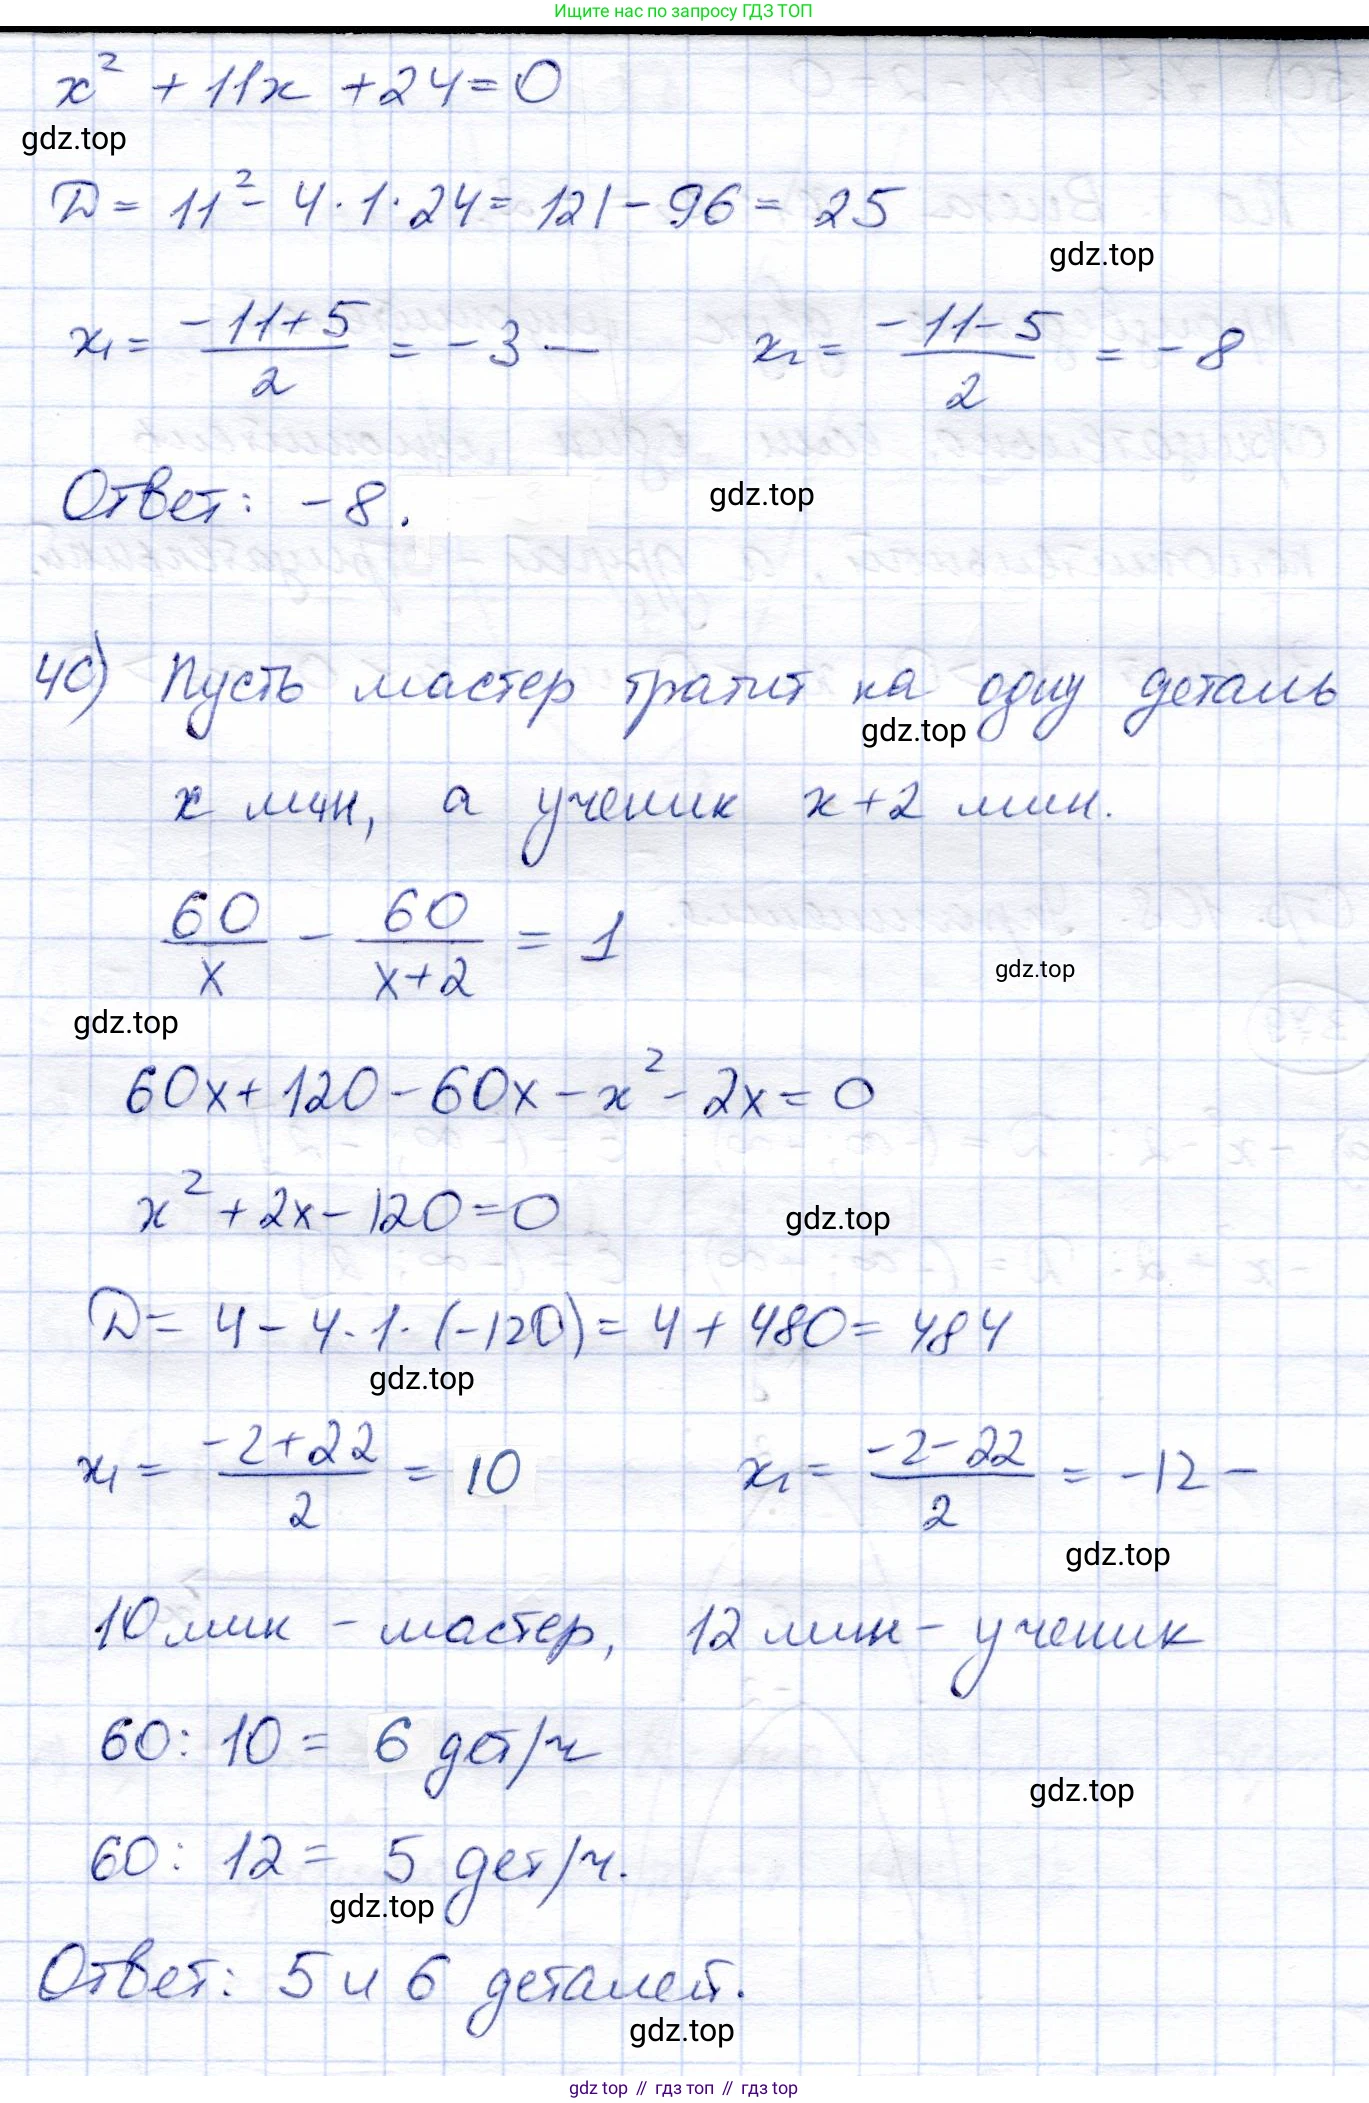 Ищите нас по запросу ГДЗ ТОП
x² + 11x + 24 = 0
gdz.top
D = 11² - 4·1·24 = 121 - 96 = 25
gdz.top
x₁ = (-11+5)/2 = -3 — x₂ = (-11-5)/2 = -8
Ответ: -8.
gdz.top
4С) Пусть мастер тратит на одну деталь
gdz.top
x мин, а ученик x+2 мин.
60/x - 60/(x+2) = 1
gdz.top
gdz.top
60x + 120 - 60x - x² - 2x = 0
x² + 2x - 120 = 0
gdz.top
D = 4 - 4·1·(-120) = 4 + 480 = 484
gdz.top
x₁ = (-2+22)/2 = 10 x₂ = (-2-22)/2 = -12 —
gdz.top
10 мин - мастер, 12 мин - ученик
60 : 10 = 6 дет/ч
gdz.top
60 : 12 = 5 дет/ч.
gdz.top
Ответ: 5 и 6 деталей.
gdz.top
gdz top // гдз топ // гдз top